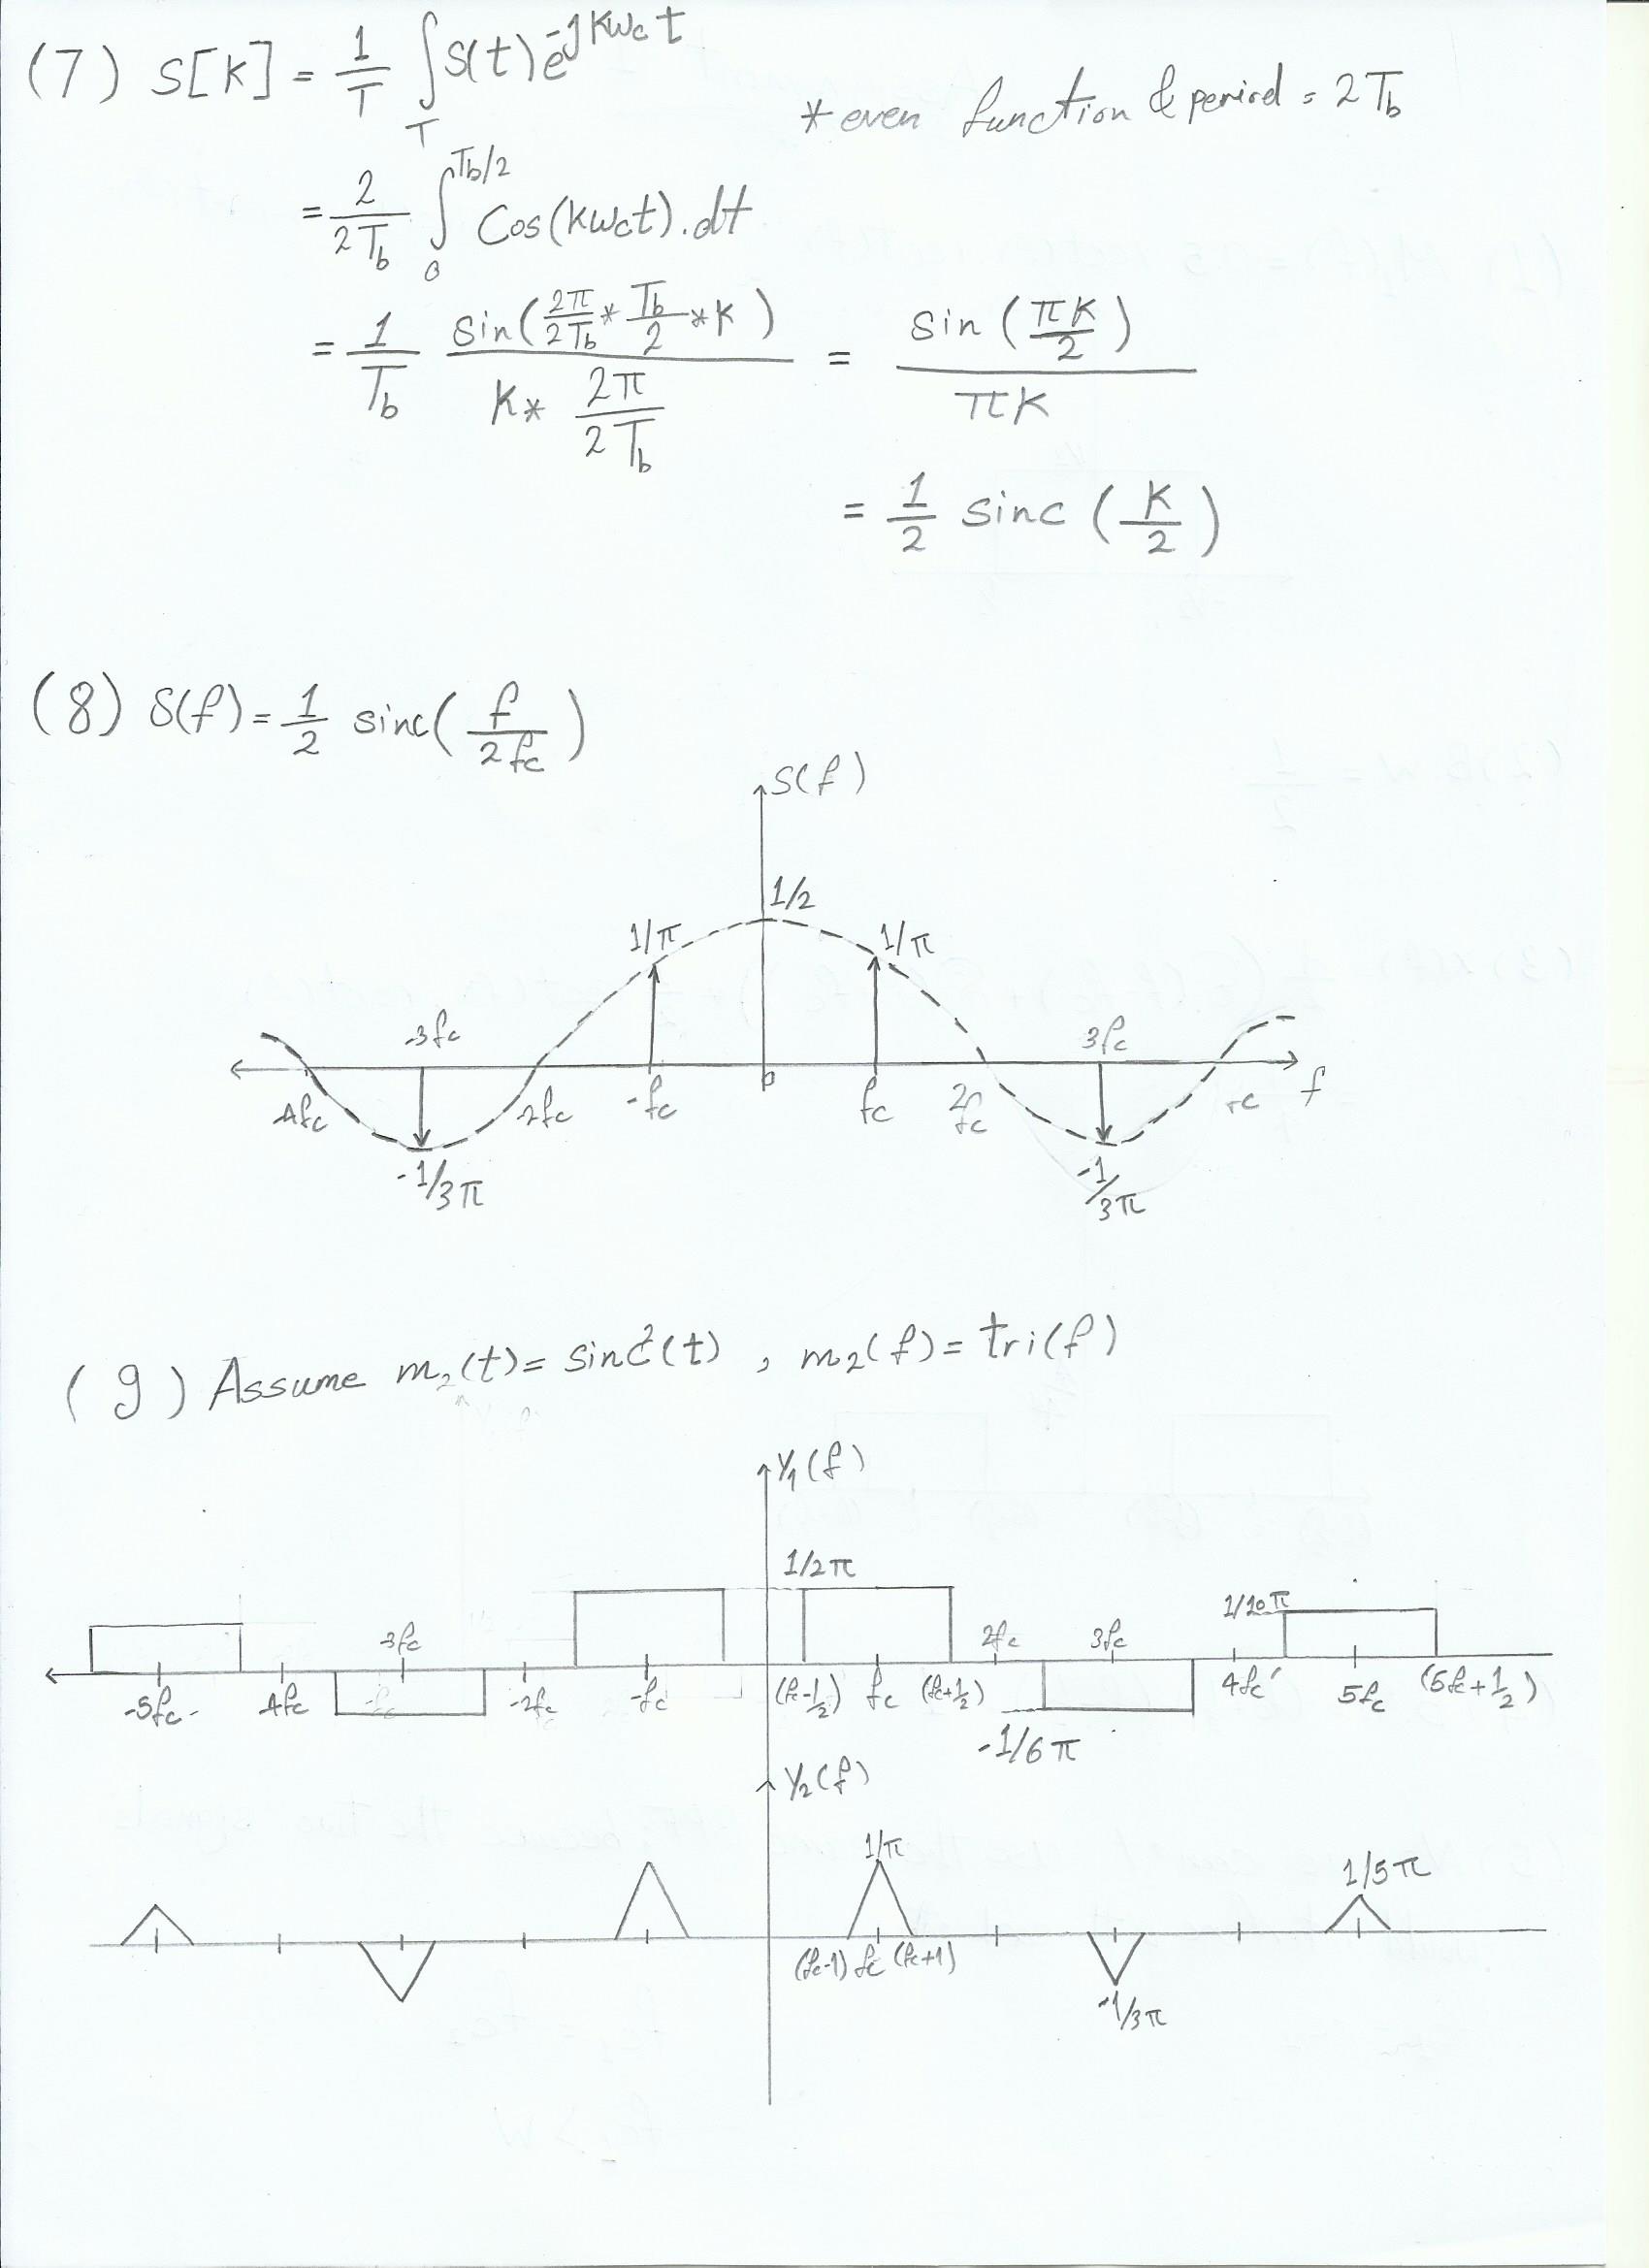 (7) S[K] = 1/T ∫_T S(t) e^-jKwct
* even function & period = 2Tb
= 2/2Tb ∫_0^Tb/2 Cos(kwct).dt
= 1/Tb sin(2π/2Tb * Tb/2 * K) / K* 2π/2Tb = sin(πK/2) / πK
= 1/2 sinc (K/2)
(8) S(f) = 1/2 sinc(f/2fc)
S(f)
1/2
1/π 1/π
-3fc 3fc
-4fc -2fc -fc 0 fc 2fc fc f
-1/3π -1/3π
(9) Assume m2(t) = sinc²(t) , m2(f) = tri(f)
Y1(f)
1/2π
1/10π
-3fc 2fc 3fc
-5fc -4fc -fc -2fc -fc (fc-1/2) fc (fc+1/2) 4fc 5fc (5fc+1/2)
-1/6π
Y2(f)
1/π 1/5π
(fc-1) fc (fc+1)
-1/3π